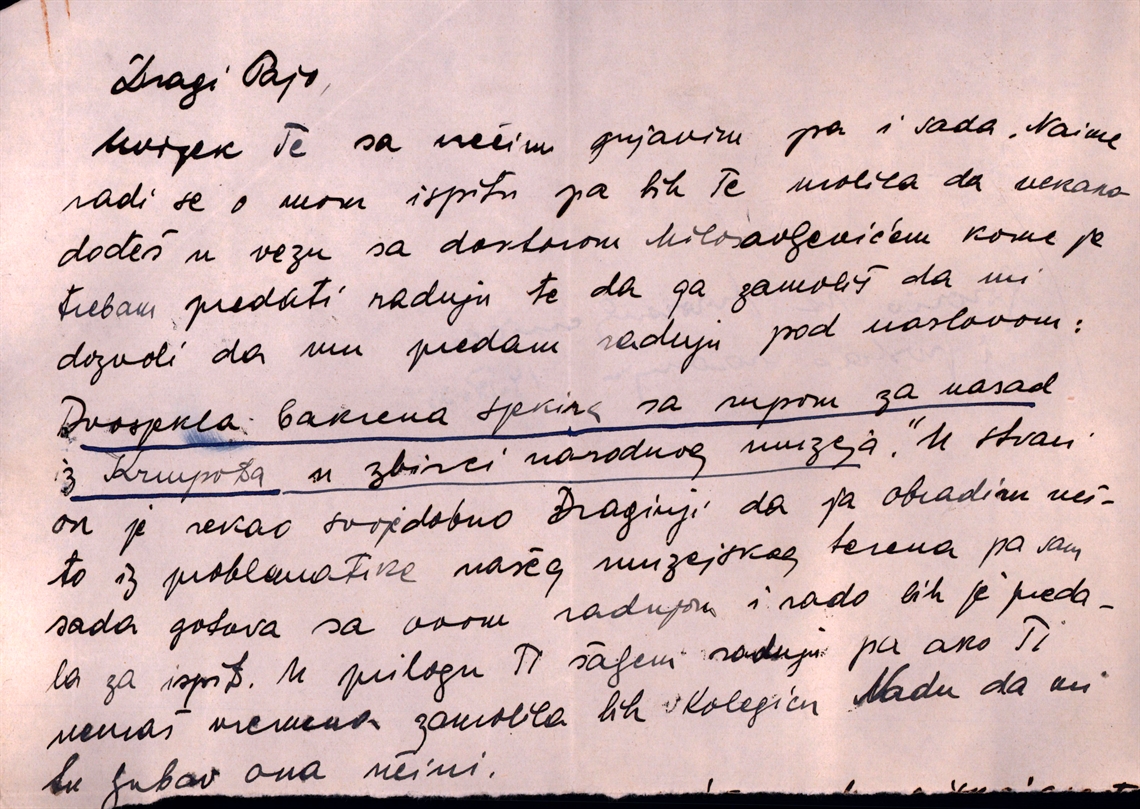 Dragi Pajo,
Uvijek Te sa nečim gnjavim pa i sada. Naime
radi se o mom ispitu pa bih Te molila da nekako
dođeš u vezu sa doktorom Milosavljevićem kome je
trebam predati radnju te da ga zamoliš da mi
dozvoli da mu predam radnju pod naslovom:
Dvosjekla bakrena sjekira sa rupom za nasad
iz Krnjpoža u zbirci narodnog muzeja." U stvari
on je rekao svojedobno Draginji da ja obradim neš-
to iz problematike našeg muzejskog terena pa sam
sada gotova sa ovom radnjom i rado bih je preda-
la za ispit. U prilogu Ti šaljem radnju pa ako Ti
nemaš vremena zamolila bih kolegicu Nadu da mi
tu ljubav ona učini.